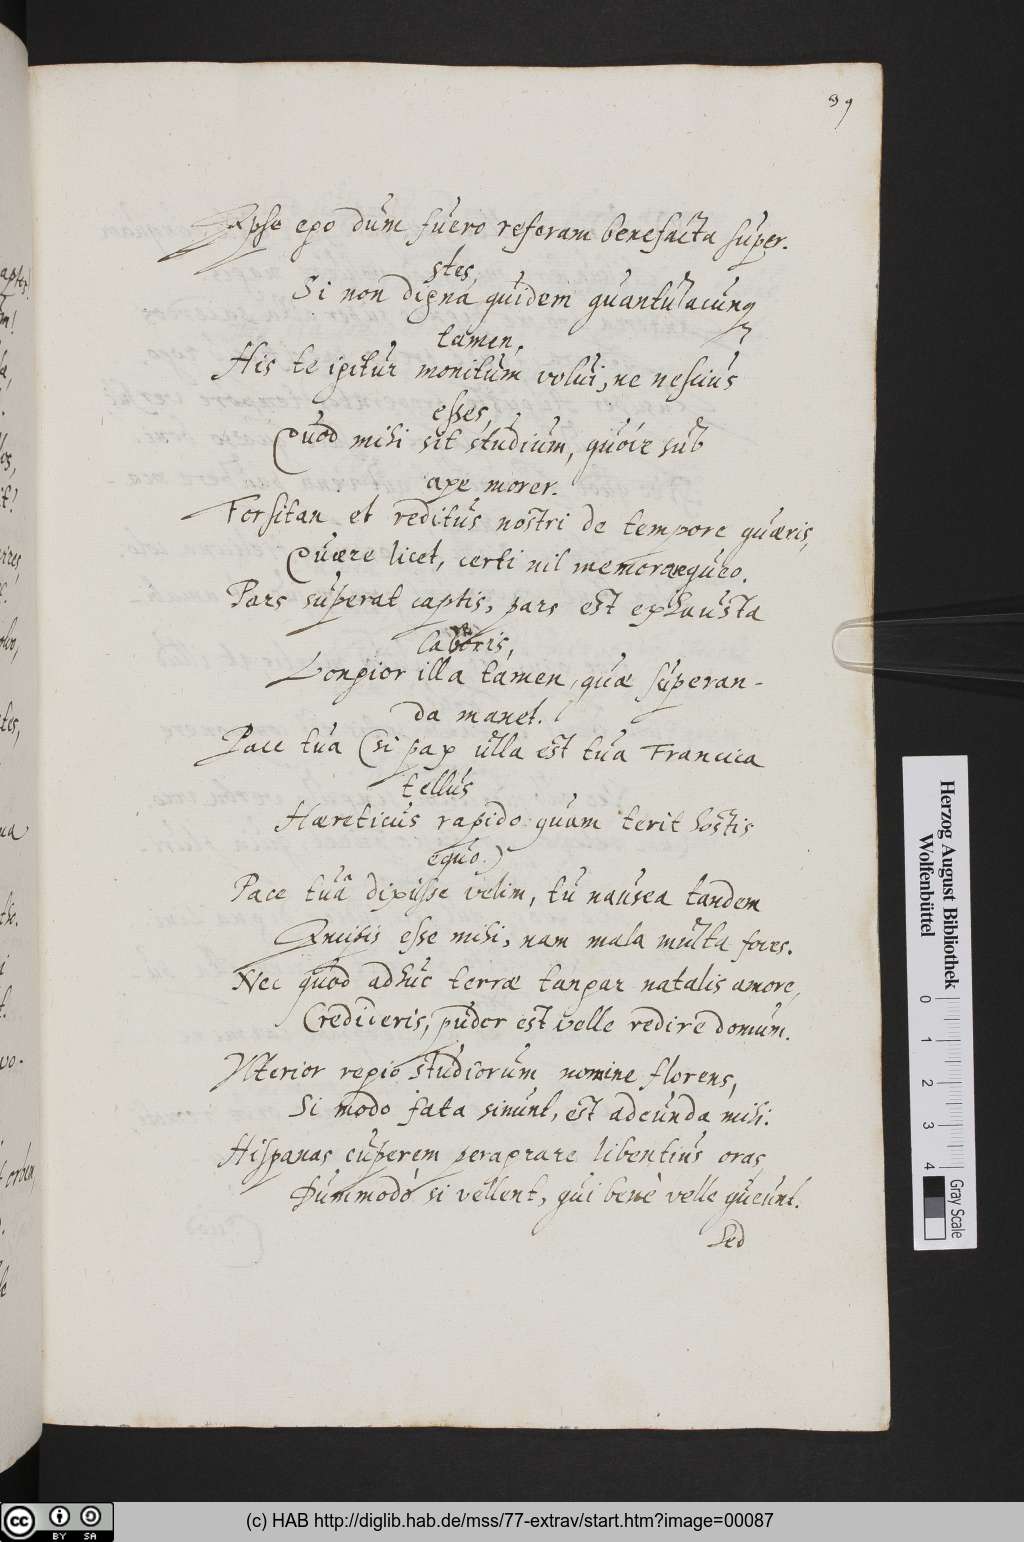 39
Ipse ego dum fuero referam benefacta super-
stes,
Si non digna quidem quantulacunq
tamen,
His te igitur monitum volui, ne nescius
esses,
Quod mihi sit studium, quove sub
axe morer.
Forsitan et reditus nostri de tempore quæris,
Quære licet, certi nil memorare queo.
Pars superat captis, pars est exhausta
laboris,
Longior illa tamen, quæ superan-
da manet.
Pace tua (si pax ulla est tua Francica
tellus
Hæreticus rapido quam terit hostis
equo.)
Pace tuâ dixisse velim, tu nausea tandem
Incibis esse mihi, nam mala multa foves.
Nec quod adhuc terræ tangar natalis amore,
Credideris, pudor est velle redire domum.
Ulterior regio studiorum nomine florens,
Si modo fata sinunt, est adeunda mihi.
Hispanas cuperem peragrare libentius oras,
Dummodo si vellent, qui benè velle queunt.
Sed
Herzog August Bibliothek
Wolfenbüttel
0 1 2 3 4
Gray Scale
(c) HAB http://diglib.hab.de/mss/77-extrav/start.htm?image=00087
cc BY SA